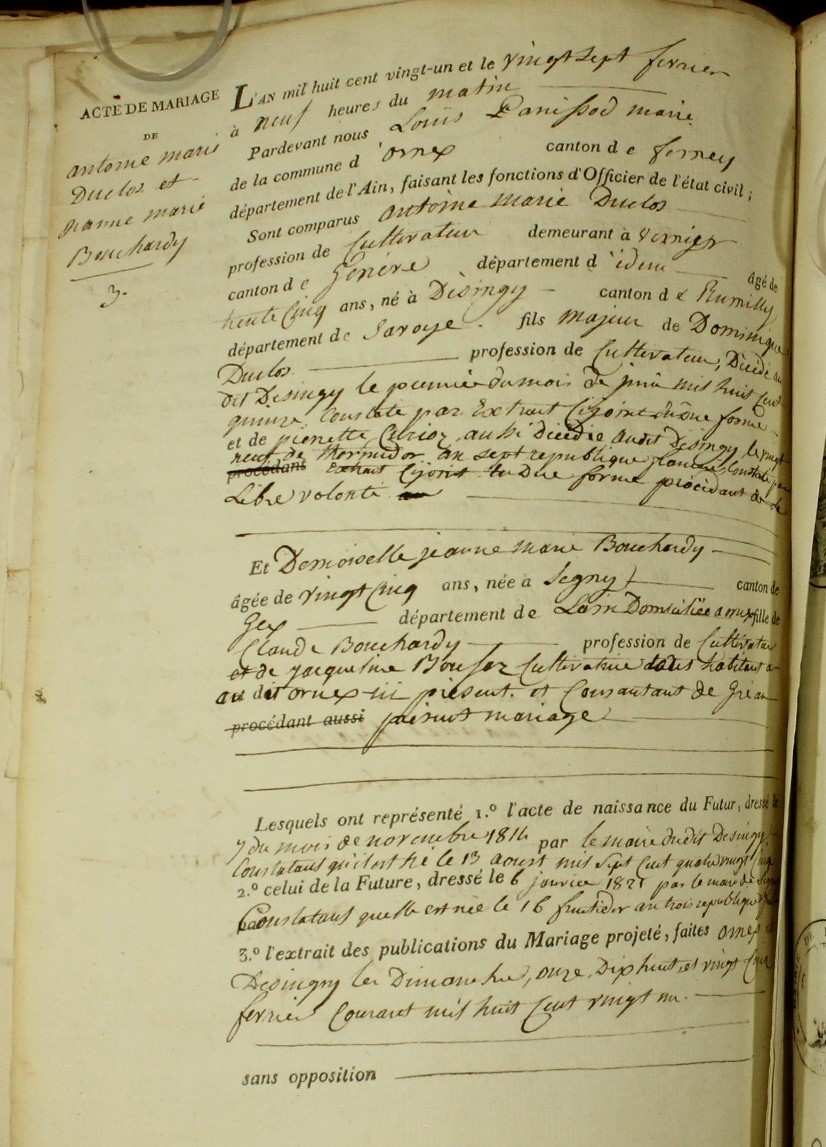 ACTE DE MARIAGE
DE
antoine marie
Duclos et
jeanne marie
Bouchardy
3.
L'AN mil huit cent vingt-un et le vingt sept fevrier
à neuf heures du matin
Pardevant nous Louis Panissod maire
de la commune d'ornex canton de ferney
département de l'Ain, faisant les fonctions d'Officier de l'état civil;
Sont comparus antoine marie Duclos
profession de Cultivateur demeurant à Vernier
canton de Genève département d'idem âgé de
trente Cinq ans, né à Désingy canton de Rumilly
département de Savoye. fils majeur de Dominique
Duclos profession de Cultivateur, Décédé au
dit Desingy le premier du mois de juin mil huit cent
quinze, Constaté par Extrait Cijoint dûe forme
et de pierrette aussi Décédée audit Desingy le vingt
neuf de thermidor an sept republique Constaté par
procédans Extrait Cijoint en Due forme procédant de Sa
Libre volonté
Et Demoiselle jeanne marie Bouchardy
âgée de vingt Cinq ans, née à Segny canton de
Gex département de Lain Domiciliée a ornex fille de
Claude Bouchardy profession de Cultivateur
et de jacqueline Cultivatrice habitant
au dit ornex ici present. et Consantant de
procédant aussi présent mariage
Lesquels ont représenté 1.º l'acte de naissance du Futur, dressé le
7 du mois de novembre 1814 par le maire dudit Desingy
Constatans qu'il est Né le 13 aoust mil sept Cent quatre vingt
2.º celui de la Future, dressé le 6 janvier 1821 par le maire de Segny
Constatans quelle est née le 16 fructidor an trois republique
3.º l'extrait des publications du Mariage projeté, faites ornex
Desingy les Dimanche, onze, Dixhuit et vingt Cinq
fevrier Courant mil huit Cent vingt un.
sans opposition